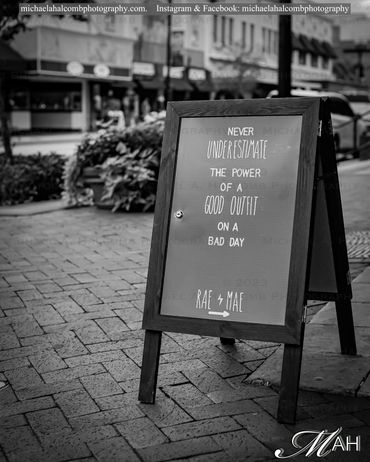 michaelahalcombphotography.com. Instagram & Facebook: michaelahalcombphotography
NEVER
UNDERESTIMATE
THE POWER
OF A
GOOD OUTFIT
ON A
BAD DAY
RAE MAE
MAH